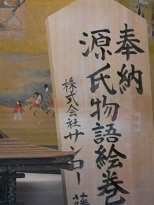 奉納
源氏物語絵巻
株式会社サンコー